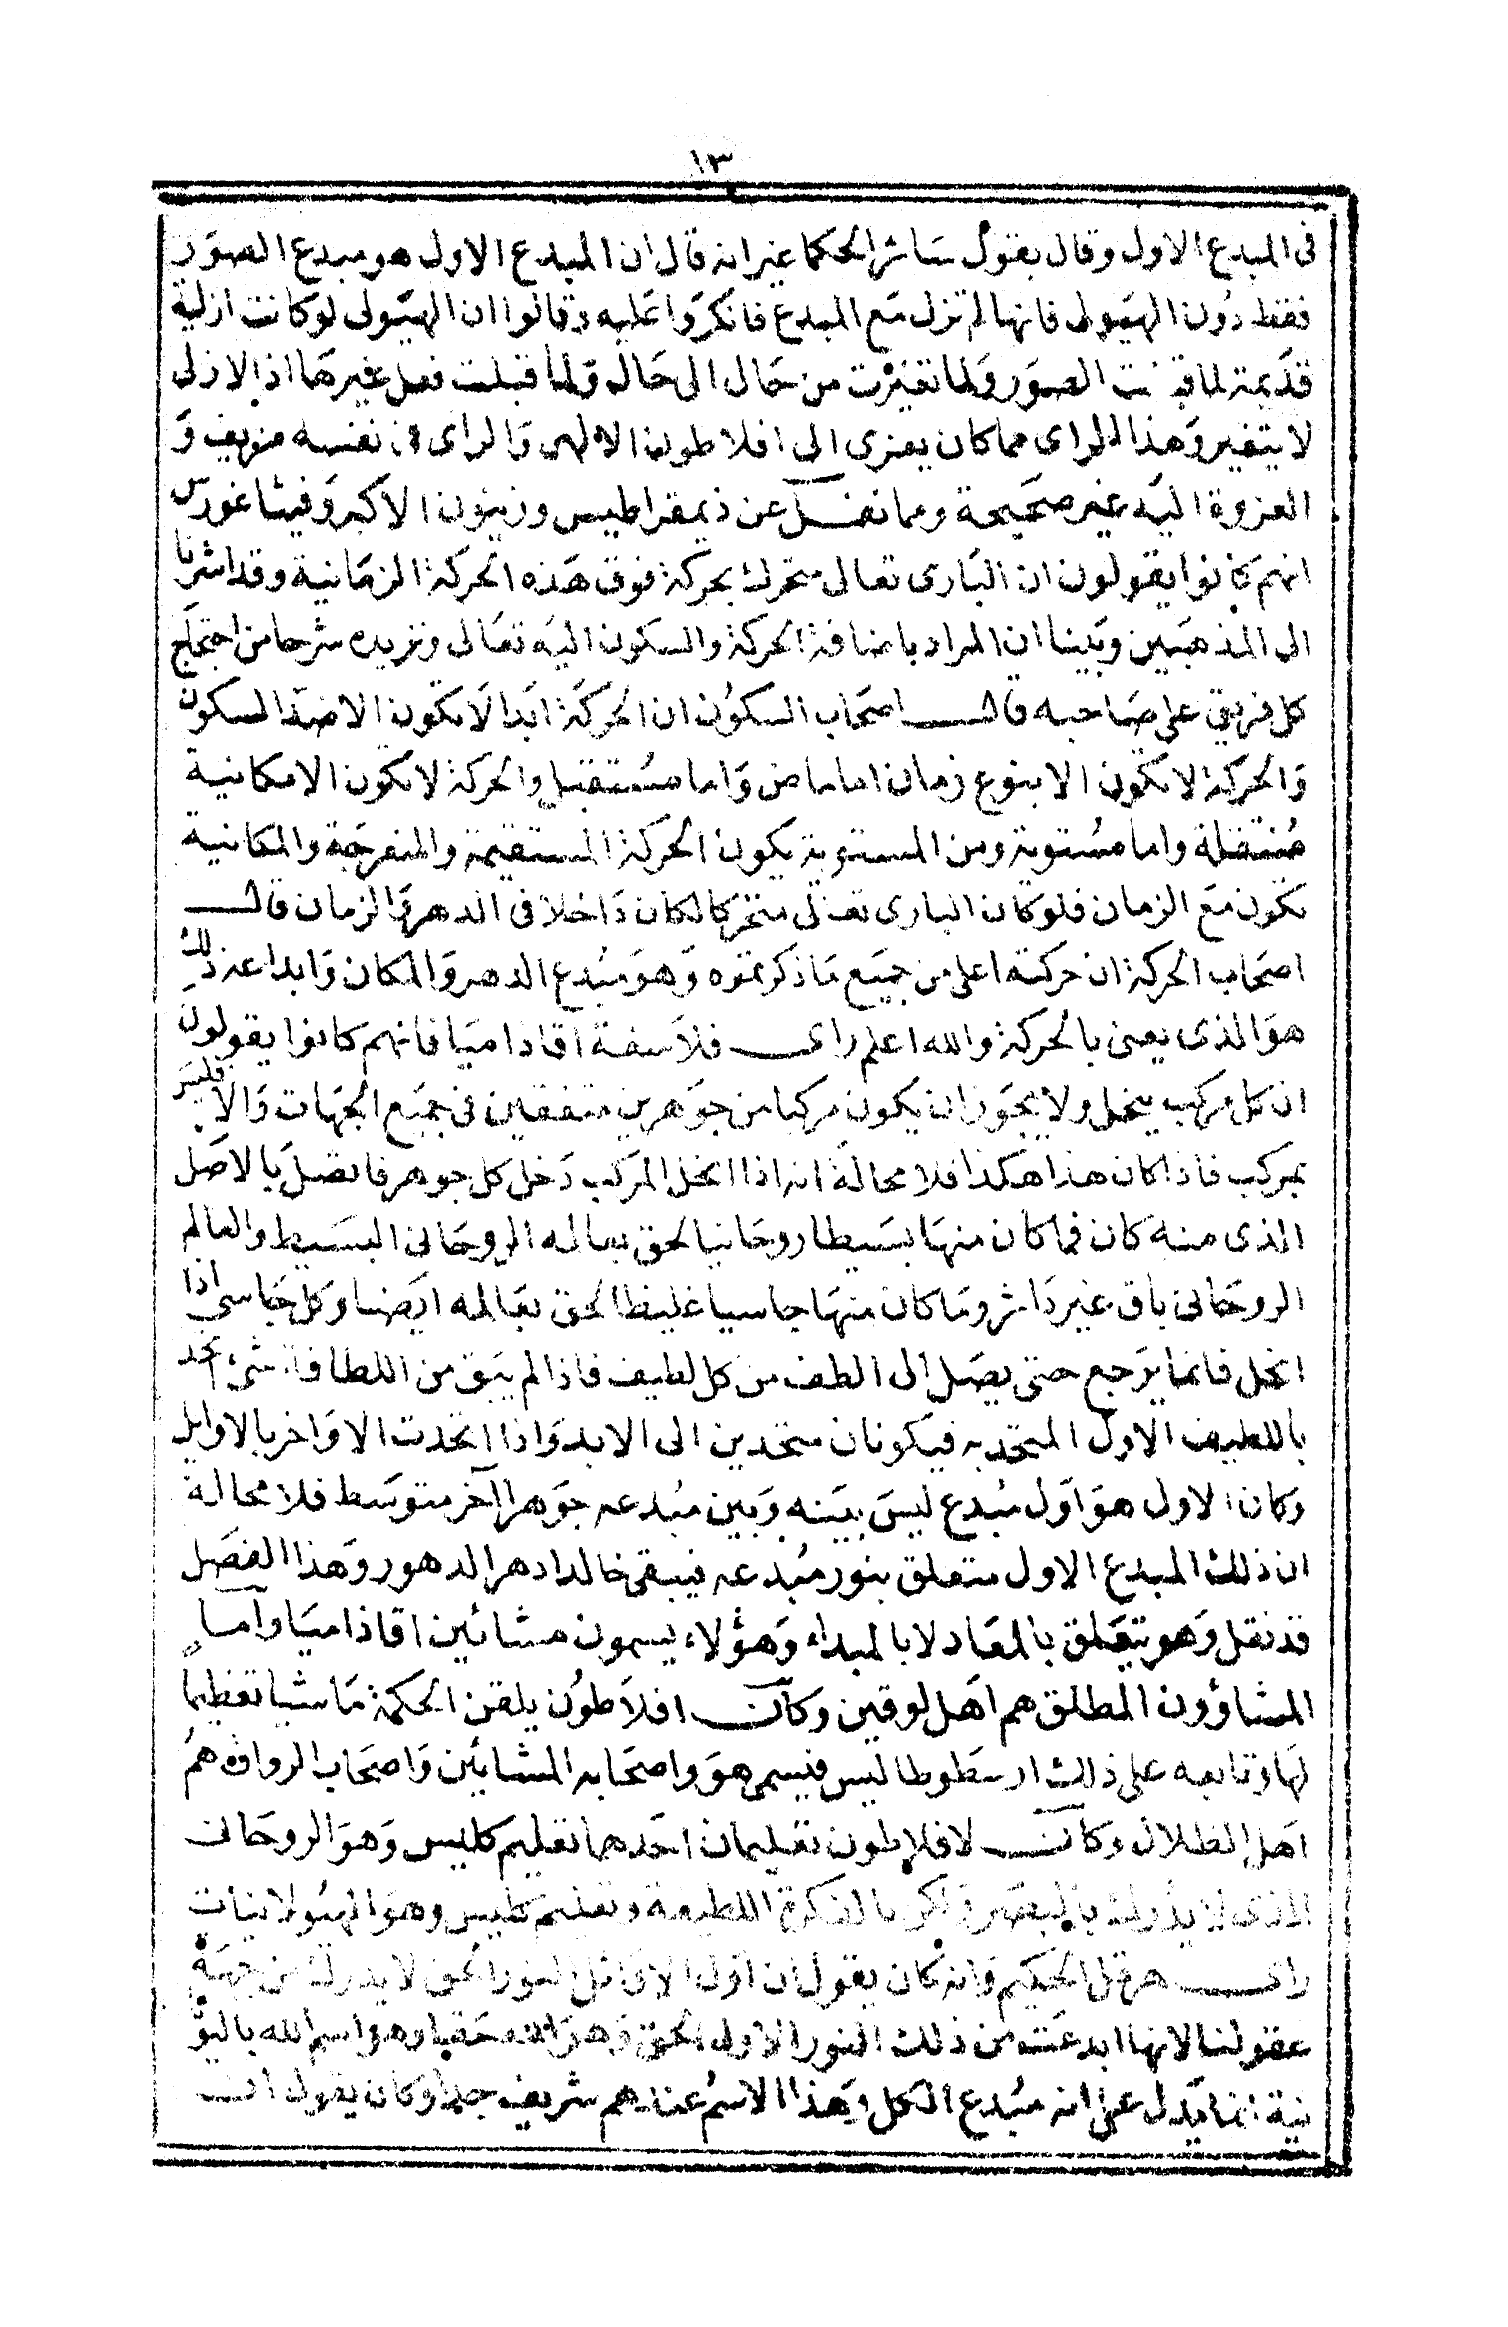 ١٣
فى المبدع الاول وقال بقول سَائر الحكما غير انه قال ان المبدع الاول هو مبدع الصوَر
فقط دُون الهيولى فانها لم تزل مَع المبدع فانكروا عَليه وقالوا ان الهيَولى لوكانت ازلية
قدَيمة لما قبلت الصوَر وَلما تغيرت من حَال الى حَال وَلما قبلت فعل غيرهَا اذ الازلى
لا يتغير وَهذا الراى مما كان يعزى الى افلاطون الالهى وَالراى فى نفسه مزيف وَ
العزوة اليَه غير صحَيحة ومما نقــل عن ذيمقراطيس وزينون الاكبر وَفيثاغورس
انهم كانوا يقولون ان البَارى تعالى متحرك بحركة فوق هَذه الحركة الزمَانية وقد اشرنا
الى المذهبَين وبَينا ان المراد باضافة الحركة والسكون اليَه تعَالى ونزيده شرحا من احتجَاج
كل فريق على صَاحبه قالــ اصحَاب السكوُن ان الحركَة ابَدا لَا تكون الا ضدَ السكون
وَالحركة لا تكون الا بنوع زمان اما ماض وَاما مسُتقبل والحركة لا تكون الا مكانية
مُنتقلة واما مسُتوية ومن المستوية يكون الحركة المستقيمة والمنفرجَة والمكانية
تكون مَع الزمان فلوكان البارى تعالى متحركا لكان دَاخلا فى الدهر وَالزمان قالــ
اصحَاب الحركة ان حركته اعلى من جميَع مَا ذكرتموه وَهوَ مبُدع الدهر وَالمكان وَابداعه ذلك
هوَ الذى يعنى بالحركة والله اعلم راىــ فلاَسفة اقاداميَا فانهم كانوا يقولون
ان كل مركب ينحل ولا يجوَز ان يكون مركبا من جوَهرين متفقين فى جميَع الجهَات وَالا فليس
بمركب فاذا كان هذا هكذا فلا محالَة انه اذا انحل المركب دَخل كل جوهر فاتصلَ بَالاصَل
الذى منه كان فما كان منهَا بسَيطا روحَانيا لحق بعالمه الروحَانى البسَيط والعالم
الروحَانى باق غير دَاثر ومَا كان منهَا جاسيا غليظا لحق بعَالمه ايَضا وكل جَاسى اذا
انحل فانما يرَجع حتى يصَل الى الطف من كل لطيف فاذا لم يبَق من اللطافة شىء اتحد
باللطيف الاول المتحد به فيكونان متحدين الى الابد وَاذا اتحدت الاوَاخر بالاوايل
وكان الاول هوَ اوَل مبُدع ليسَ بيَنه وَبين مبُدعه جوَهر اٰخر متوسَط فلا محالة
ان ذلك المبدع الاول متعلق بنور مبُدعه فيبقى خالدا دهر الدهور وَهذا الفصَل
قد نقل وَهو يتعَلق بالمعَاد لا بالمبداء وَهؤلاء يسمون مشائين اقاذاميَا واما
المشاؤون المطلق هم اهَل لوقين وكانــ افلاَطوُن يلقن الحكمة مَاشيا تعظيما
لهَا وتابعه على ذلك ارسَطوطاليس فيسمى هوَ واصحَابه المشَائين وَاصحَاب الرواق همُ
اهَل الظلال وكانــ لافلاطون تعليمان احَدهما تعليم كليس وَهوَ الروحَانى
الذى لا يدُرك بالبصَر وَلكن بالفكرة اللطيفة وتعليم كليس وهوَ الهيُولانيات
راىــ هرقل الحكيم وَانه كان يقول ان اوَل الاوَائل النور الحق لا يدرك من جهَة
عقولنا لانها ابدعَت من ذلك النور الاول الحق وَهوَ الله حقا وهو اسم الله باليوُنا
نية انما يدَل على انه مبُدع الكل وَهذا الاسمُ عندهم شريف جدا وكان يقول ان